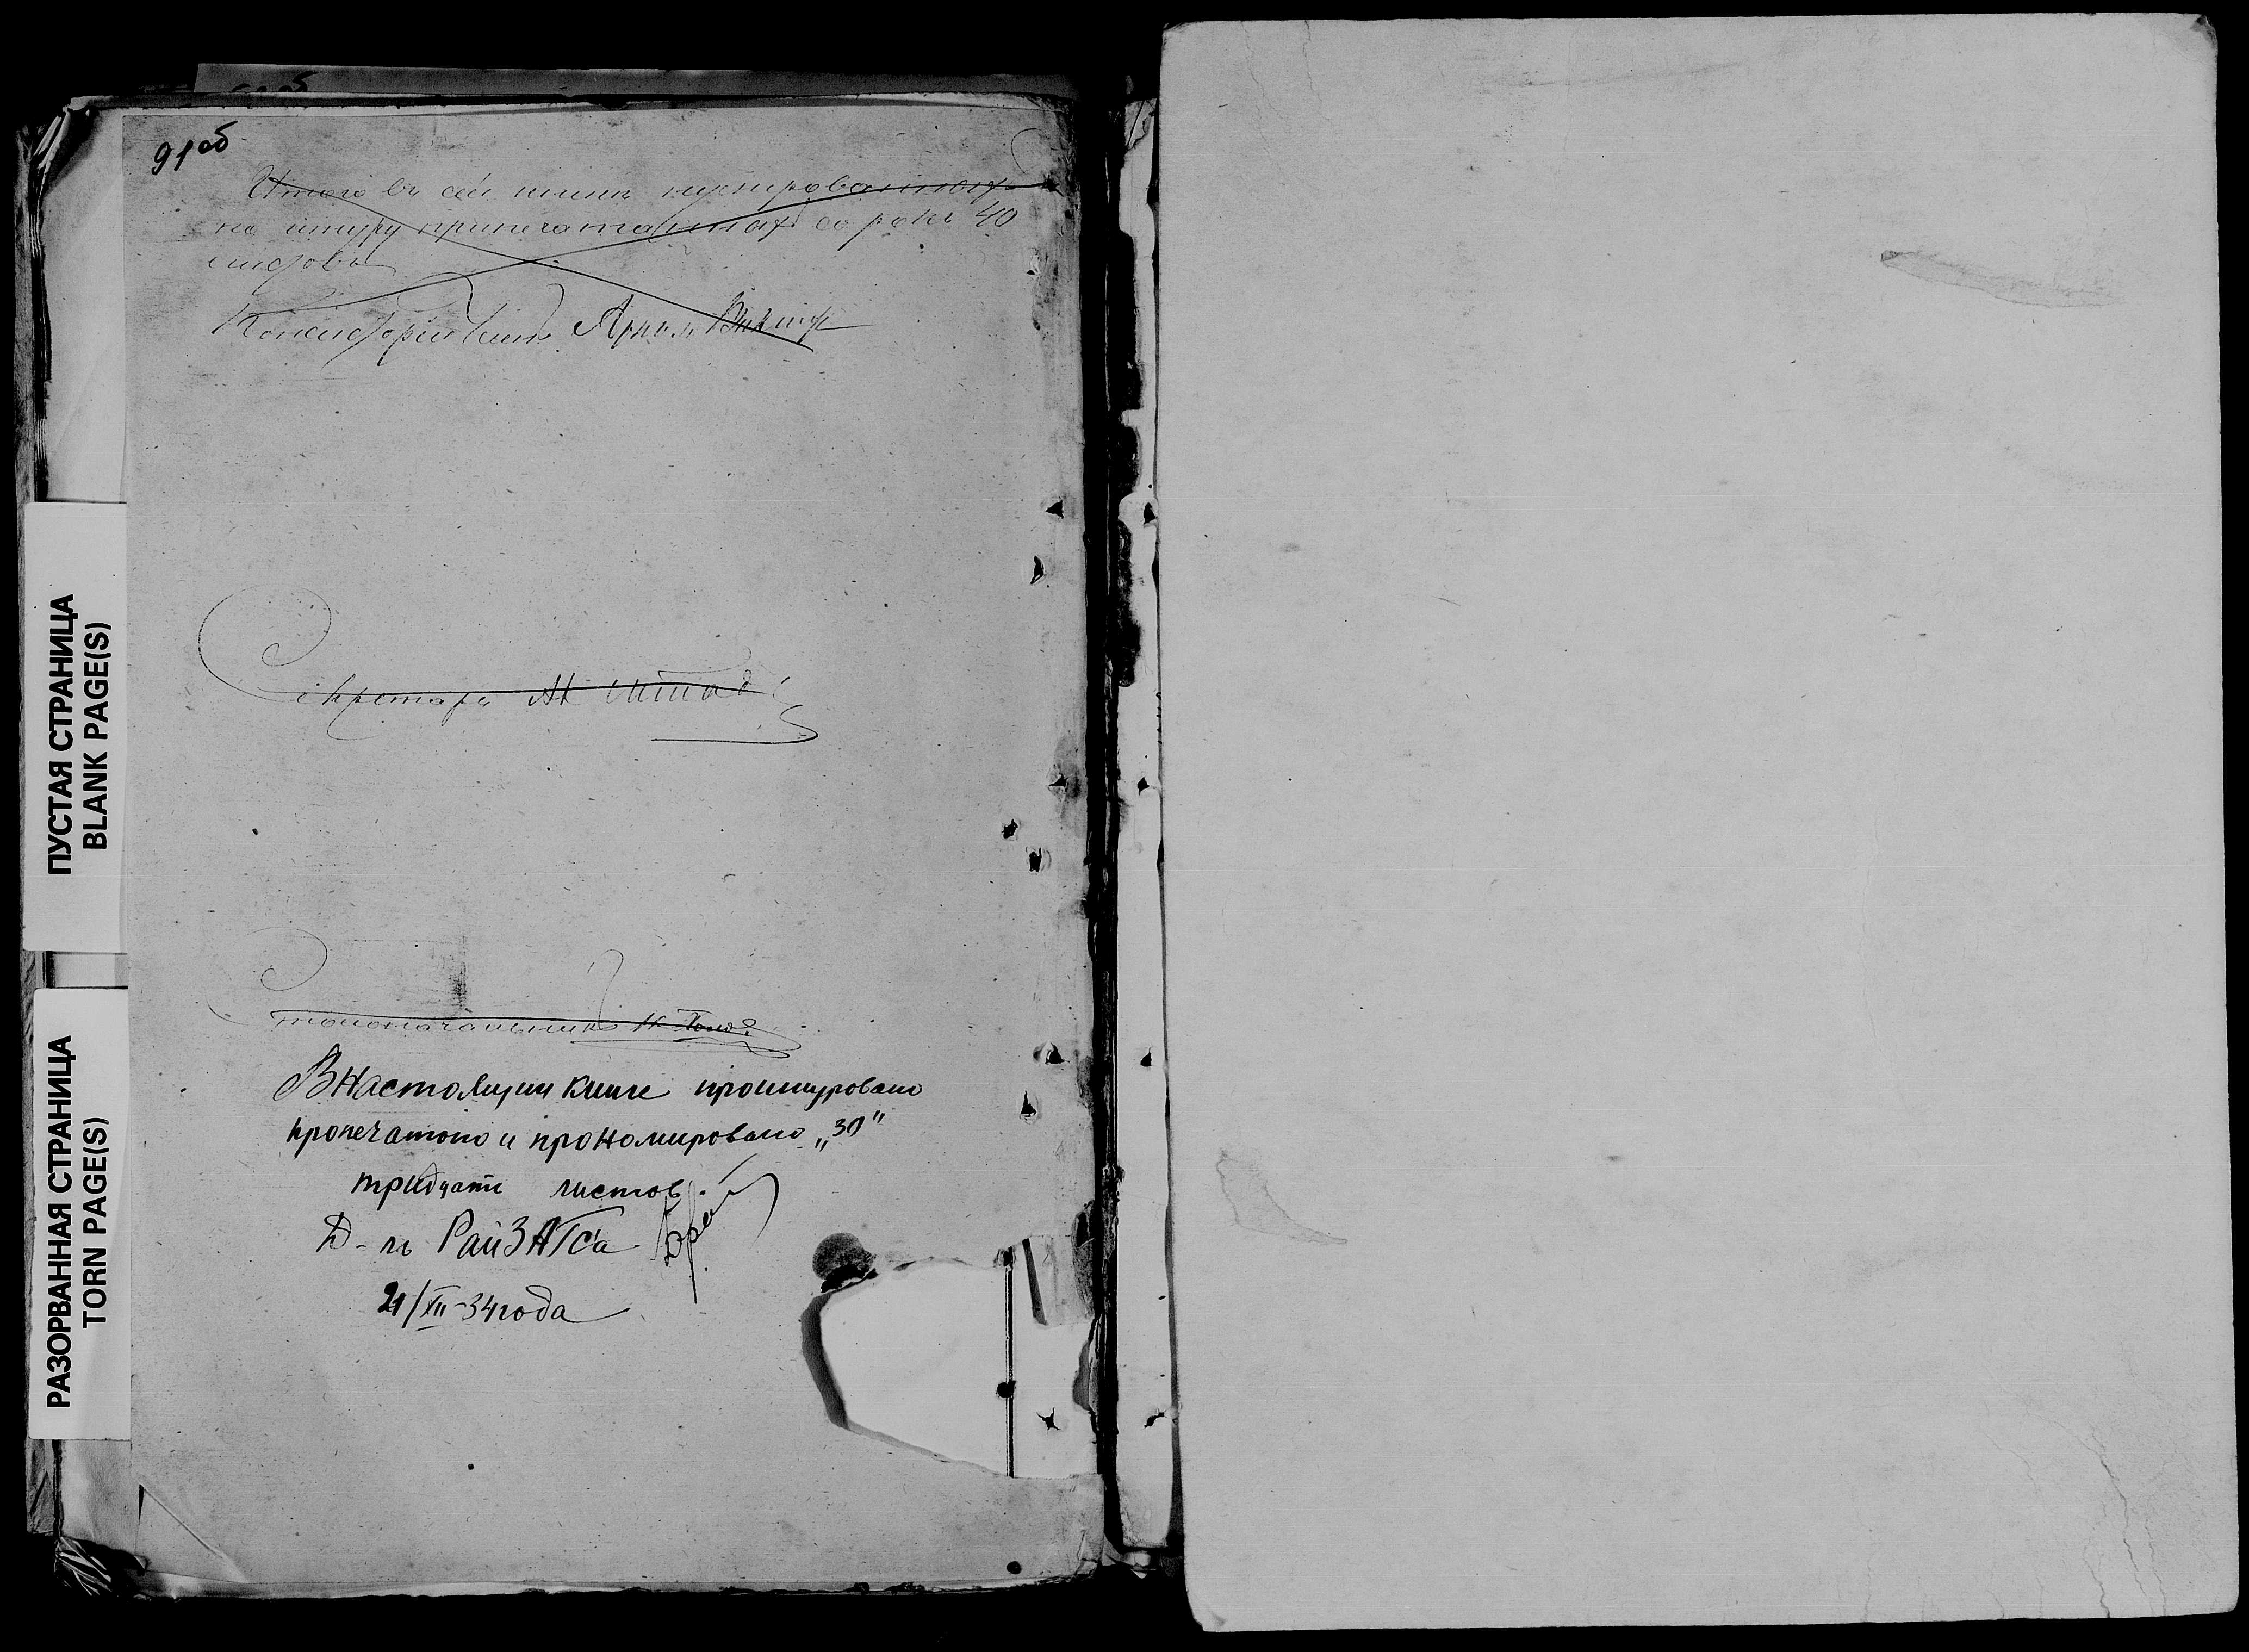 91об
Итого въ сей книге нумерованныхъ
по шнуру припечатанныхъ сорокъ 40
листовъ
Секретарь
столоначальникъ
В настоящии книге прошнуровано
пропечатоно и прономировано „30"
тридцать листов.
Д-ль РайЗАГСа
21/XII-34 года
ПУСТАЯ СТРАНИЦА
BLANK PAGE(S)
РАЗОРВАННАЯ СТРАНИЦА
TORN PAGE(S)